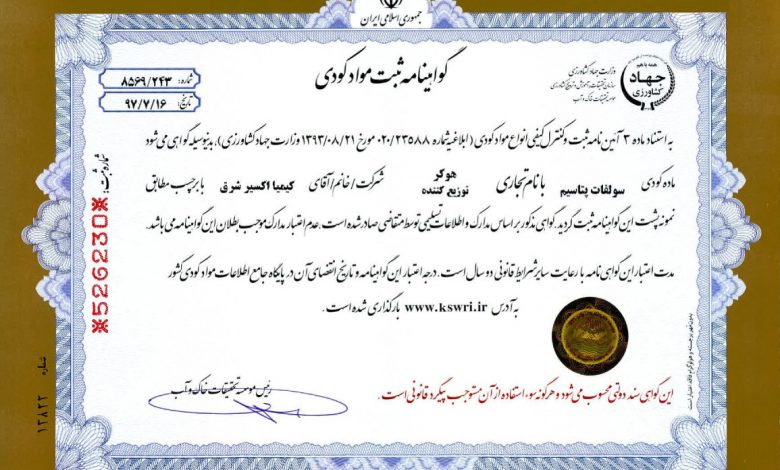 جمهوری اسلامی ایران
همه با هم
جهاد
کشاورزی
وزارت جهاد کشاورزی
سازمان تحقیقات، آموزش و ترویج کشاورزی
موسسه تحقیقات خاک و آب
گواهینامه ثبت مواد کودی
شماره: ۸۵۶۹/۲۴۳
تاریخ: ۹۷/۷/۱۶
به استناد ماده ۳ آئین نامه ثبت و کنترل کیفی انواع مواد کودی (ابلاغیه شماره ۰۲۰/۲۳۵۸۸ مورخ ۱۳۹۳/۰۸/۲۱ وزارت جهاد کشاورزی)، بدینوسیله گواهی می‌شود
ماده کودی سولفات پتاسیم با نام تجاری هوگر توزیع کننده شرکت/خانم/آقای کیمیا اکسیر شرق با برچسب مطابق
نمونه پشت این گواهینامه ثبت گردید. گواهی مذکور بر اساس مدارک و اطلاعات تسلیمی توسط متقاضی صادر شده است. عدم اعتبار مدارک موجب بطلان این گواهینامه می‌باشد.
مدت اعتبار این گواهی نامه با رعایت سایر شرایط قانونی دو سال است. درجه اعتبار این گواهینامه و تاریخ انقضای آن در پایگاه جامع اطلاعات مواد کودی کشور
به آدرس www.kswri.ir بارگذاری شده است.
رئیس موسسه تحقیقات خاک و آب
این گواهی سند دولتی محسوب می‌شود و هرگونه سوء استفاده از آن مستوجب پیگرد قانونی است.
شماره ثبت:
※526230※
شماره
۱۳۸۲۳
بدون مهر برجسته و هولوگرام فاقد اعتبار است